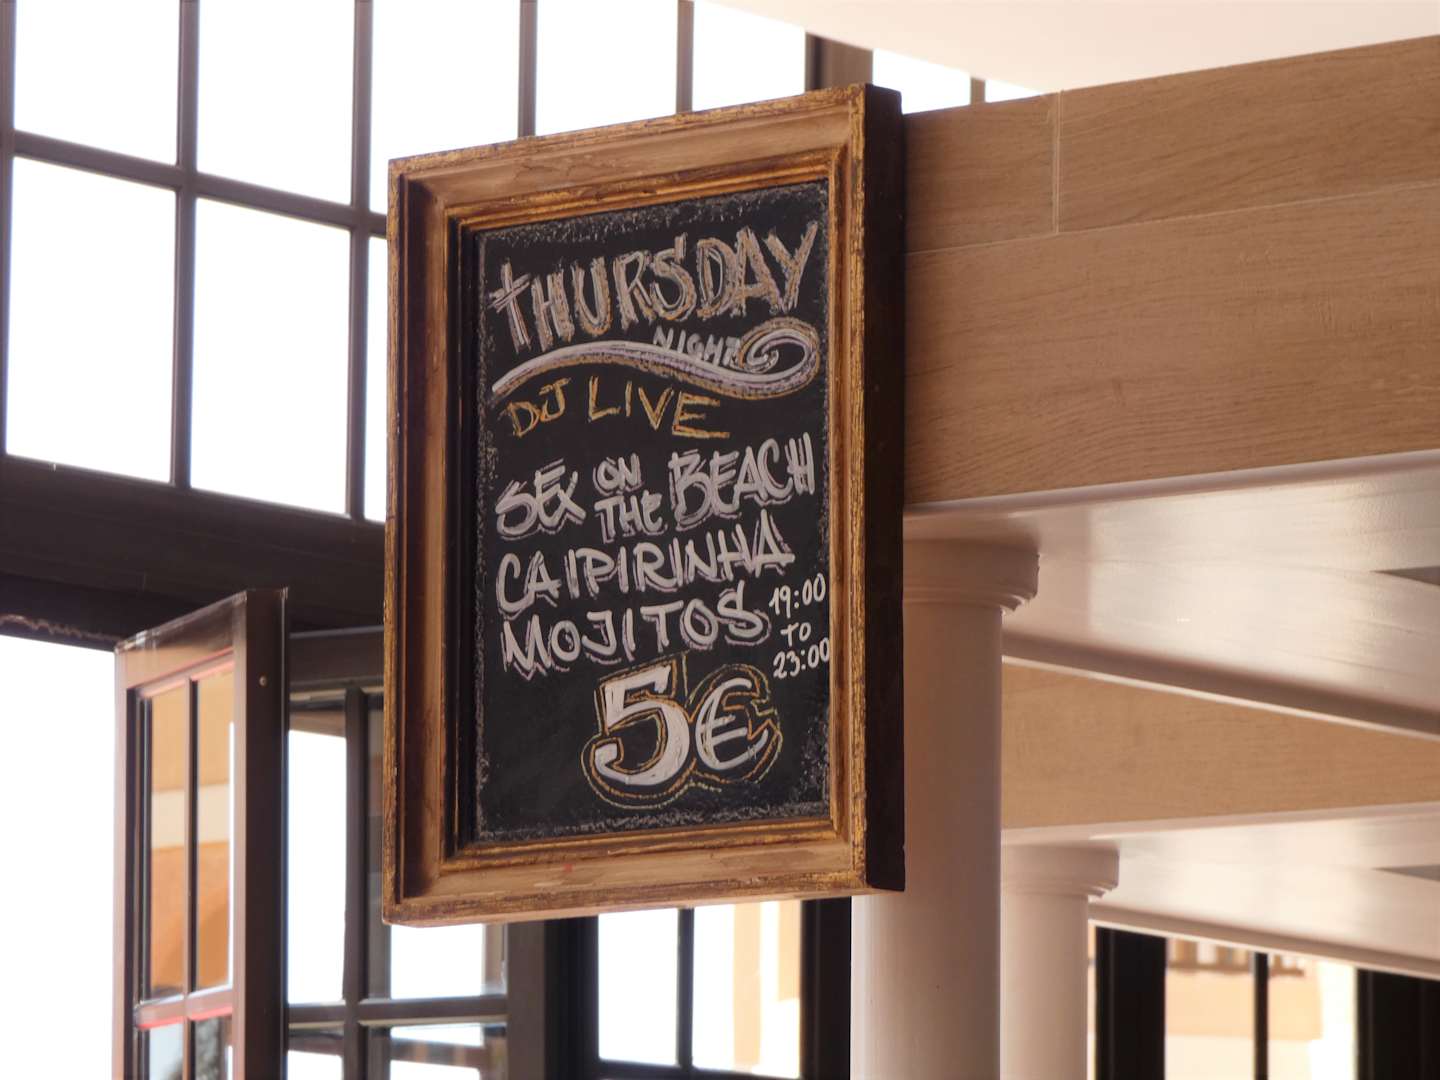 THURSDAY
NIGHT
DJ LIVE
SEX ON THE BEACH
CAIPIRINHA
MOJITOS
19:00
TO
23:00
5€